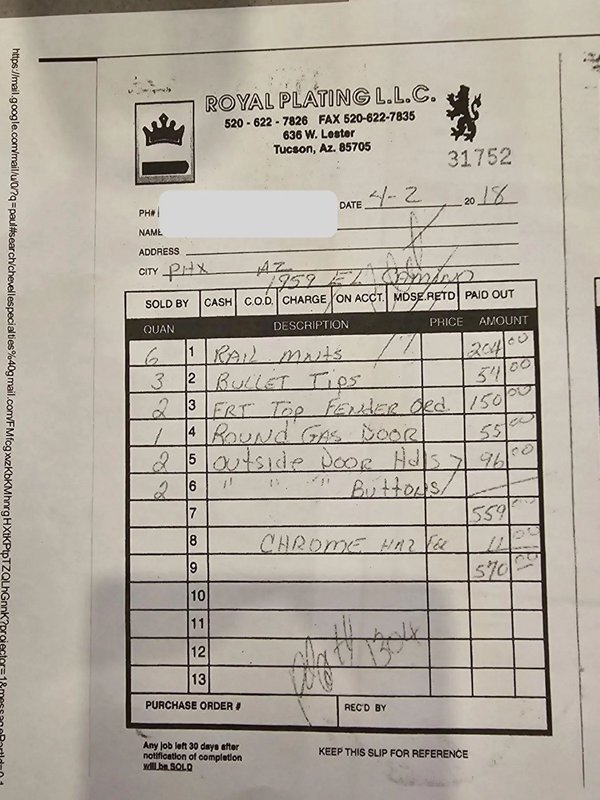 ROYAL PLATING L.L.C.
520 - 622 - 7826 FAX 520-622-7835
636 W. Lester
Tucson, Az. 85705
31752
PH#
DATE 4-2 2018
NAME
ADDRESS
CITY PHX AZ
1959 EL Camino
SOLD BY CASH C.O.D. CHARGE ON ACCT. MDSE.RETD PAID OUT
QUAN DESCRIPTION PRICE AMOUNT
6 1 RAIL MNTS 204 00
3 2 BULLET TIPS 54 00
2 3 FRT TOP FENDER ORD. 150 00
1 4 ROUND GAS DOOR 55 00
2 5 OUTSIDE DOOR Hdls 96 00
2 6 " " " Buttons
7 559 00
8 CHROME HAZ Fee 11 00
9 570 00
10
11
12
13
PURCHASE ORDER # REC'D BY
Any job left 30 days after
notification of completion
will be SOLD
KEEP THIS SLIP FOR REFERENCE